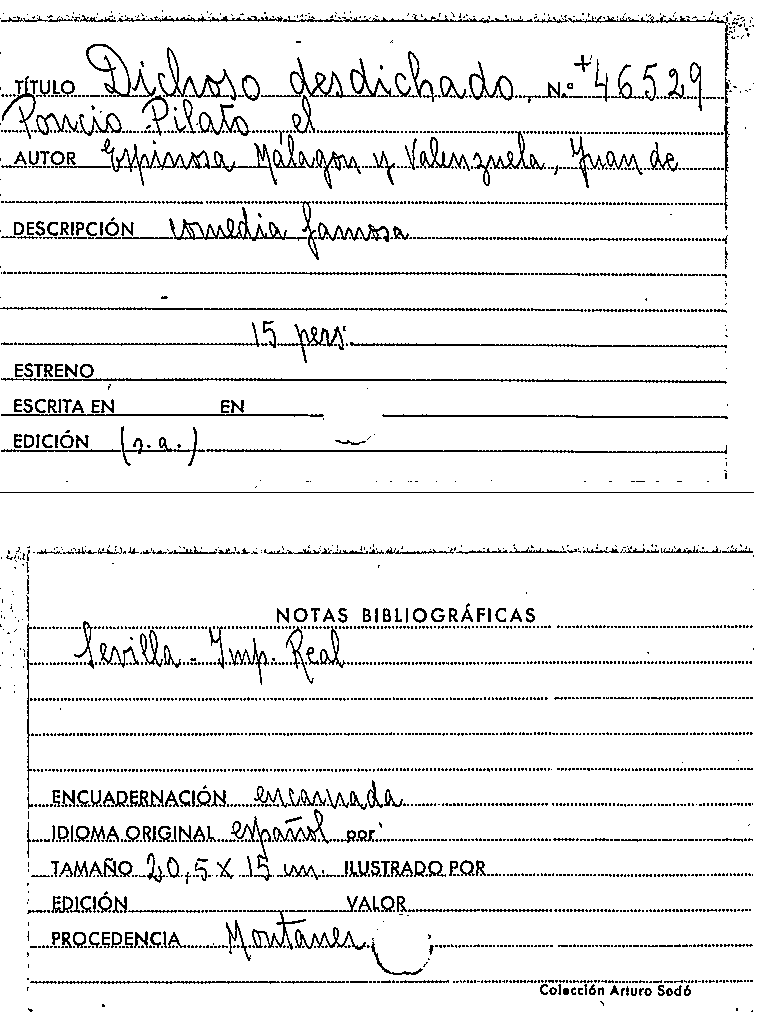 TÍTULO Dichoso desdichado, N.º +46529
Poncio Pilato el
AUTOR Espinosa Málagon y Valenzuela, Juan de
DESCRIPCIÓN comedia famosa
15 pers.
ESTRENO
ESCRITA EN EN
EDICIÓN (s.a.)
NOTAS BIBLIOGRÁFICAS
Sevilla - Imp. Real
ENCUADERNACIÓN encarnada
IDIOMA ORIGINAL español por
TAMAÑO 20,5 X 15 cm. ILUSTRADO POR
EDICIÓN VALOR
PROCEDENCIA Montaner
Colección Arturo Sedó